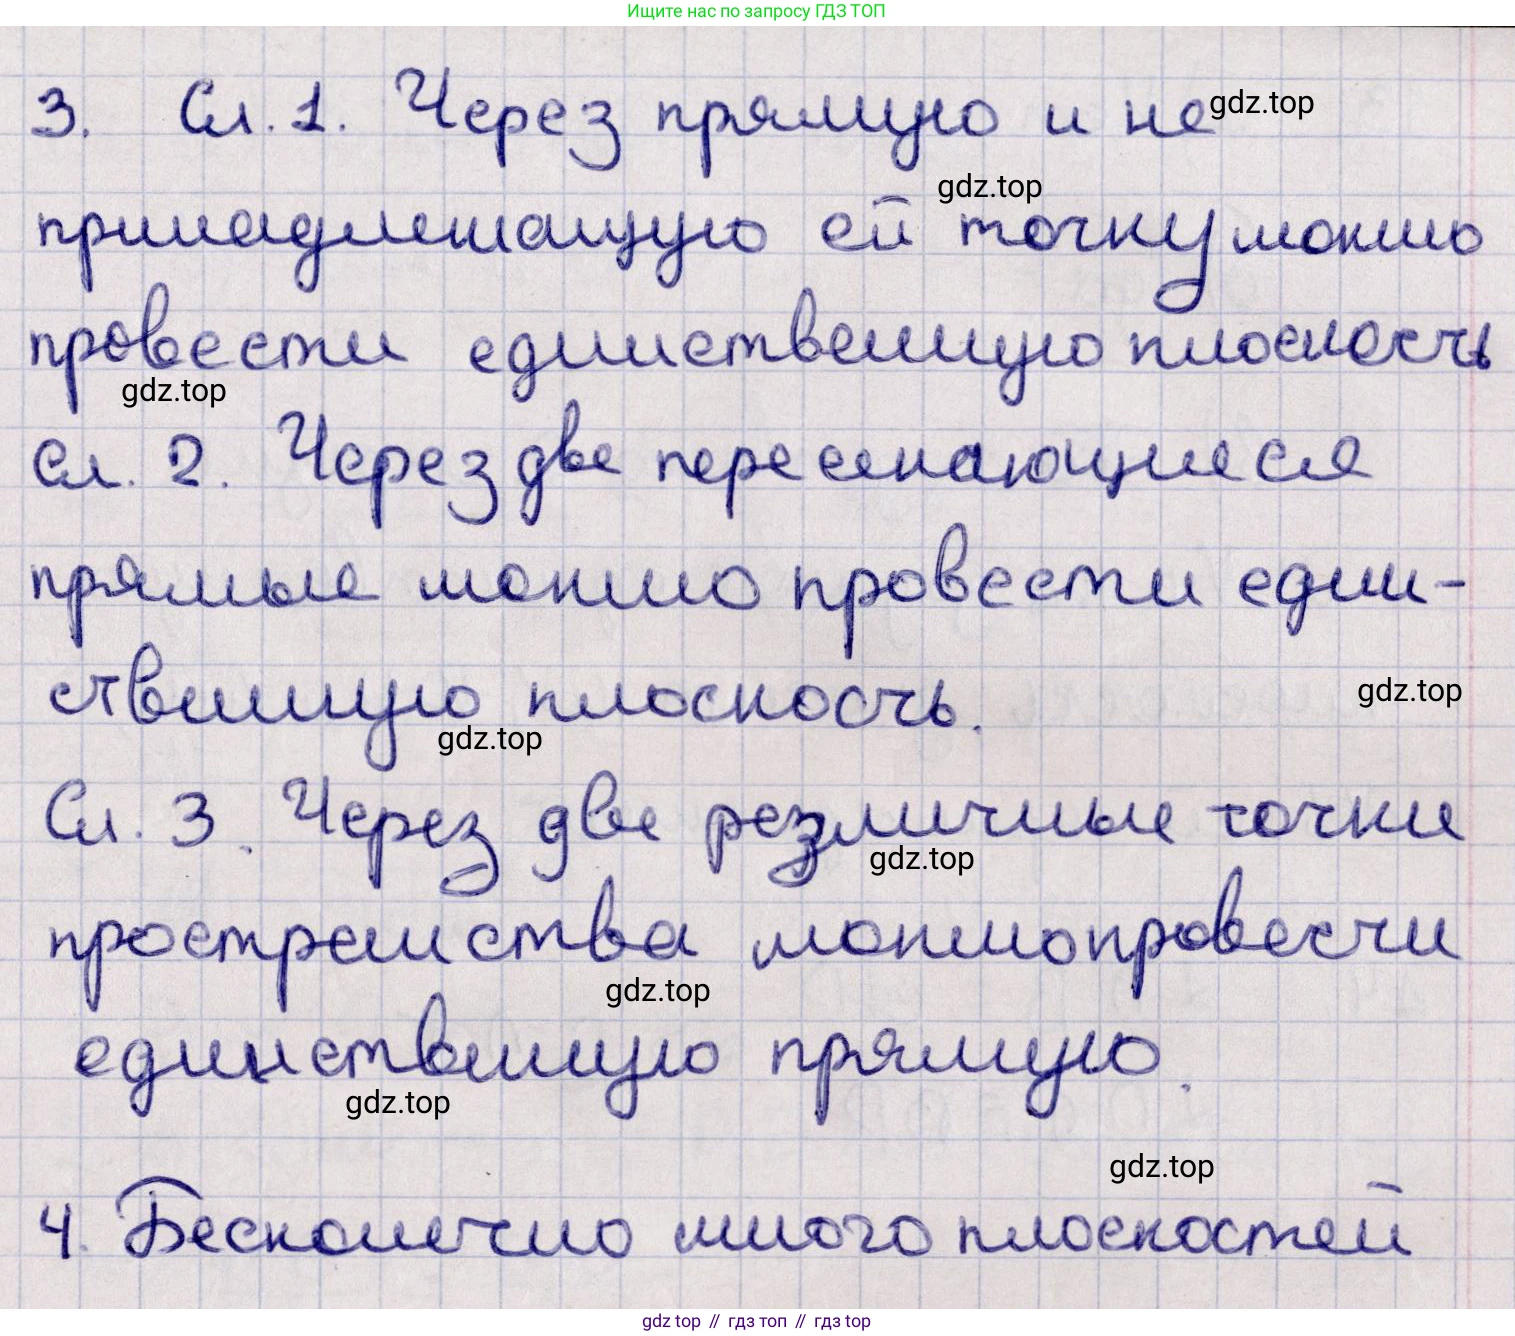 Ищите нас по запросу ГДЗ ТОП
3. Сл. 1. Через прямую и не gdz.top
gdz.top
принадлежащую ей точку можно
провести единственную плоскость
gdz.top
Сл. 2. Через две пересекающиеся
прямые можно провести един-
ственную плоскость.
gdz.top
gdz.top
Сл. 3. Через две различные точки
gdz.top
пространства можно провести
gdz.top
единственную прямую.
gdz.top
gdz.top
4. Бесконечно много плоскостей
gdz top // гдз топ // гдз top